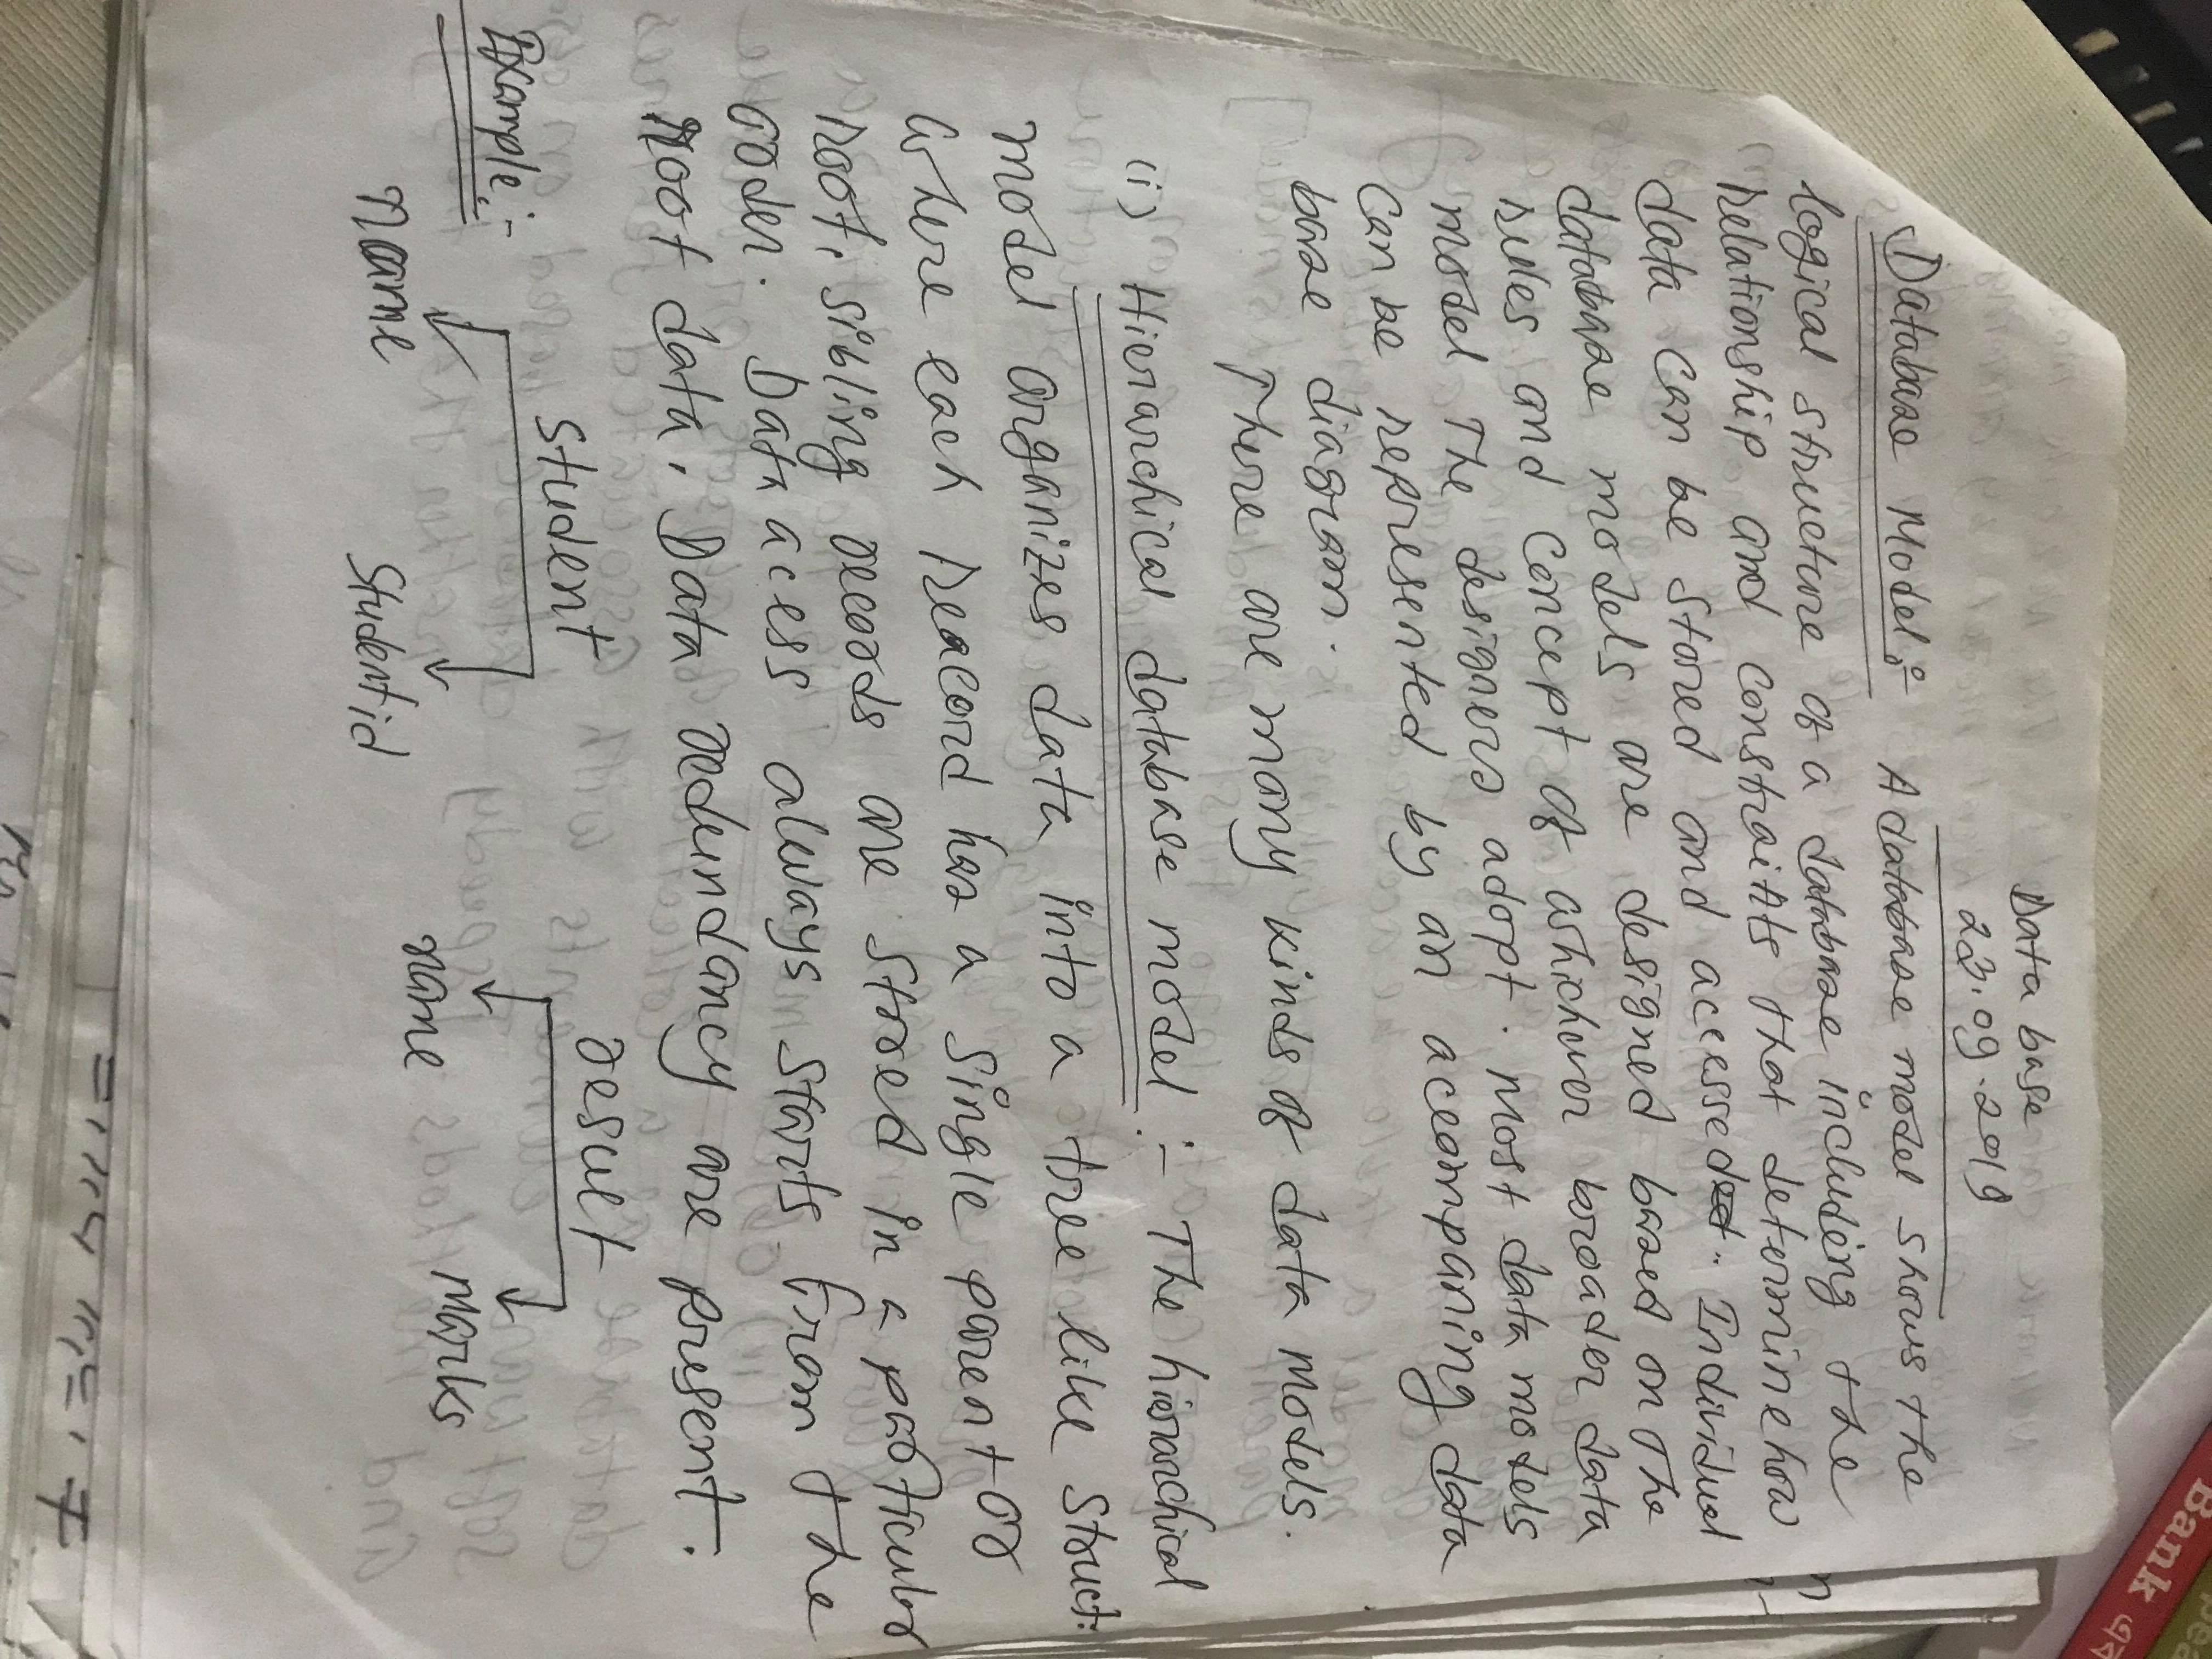 Bank এর
Data base
23.09.2019
Database Model:- A database model shows the
logical structure of a database including the
relationship and constraints that determine how
data can be stored and accessed. Individual
database models are designed based on the
rules and concept of whichever broader data
model the designers adopt. Most data models
can be represented by an accompaning data
base diagram.
There are many kinds of data models.
(i) Hierarchical database model :- The hierarchical
model organizes data into a tree like struct:
where each reacord has a single parent or
root. sibling records are stored in a particular
order. Data acess always starts from the
root data. Data redundancy are present.
Example:- student result
name Student id name marks